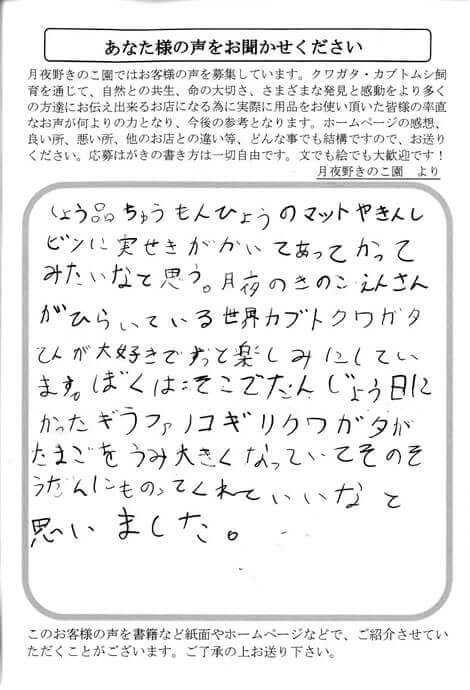 あなた様の声をお聞かせください
月夜野きのこ園ではお客様の声を募集しています。クワガタ・カブトムシ飼
育を通じて、自然との共生、命の大切さ、さまざまな発見と感動をより多く
の方達にお伝え出来るお店になる為に実際に用品をお使い頂いた皆様の率直
なお声が何よりの力となり、今後の参考となります。ホームページの感想、
良い所、悪い所、他のお店との違い等、どんな事でも結構ですので、お送り
ください。応募はがきの書き方は一切自由です。文でも絵でも大歓迎です！
月夜野きのこ園　より
しょう品ちゅうもんひょうのマットやきんし
ビンに実せきがかいてあってかって
みたいなと思う。月夜のきのこえんさん
がひらいている世界カブトクワガタ
てんが大好きでずっと楽しみにしてい
ます。ぼくはそこでたんじょう日に
かったギラファノコギリクワガタが
たまごをうみ大きくなっていてそのそ
うだんにものってくれていいなと
思いました。
このお客様の声を書籍など紙面やホームページなどで、ご紹介させてい
ただくことがございます。ご了承の上お送り下さい。